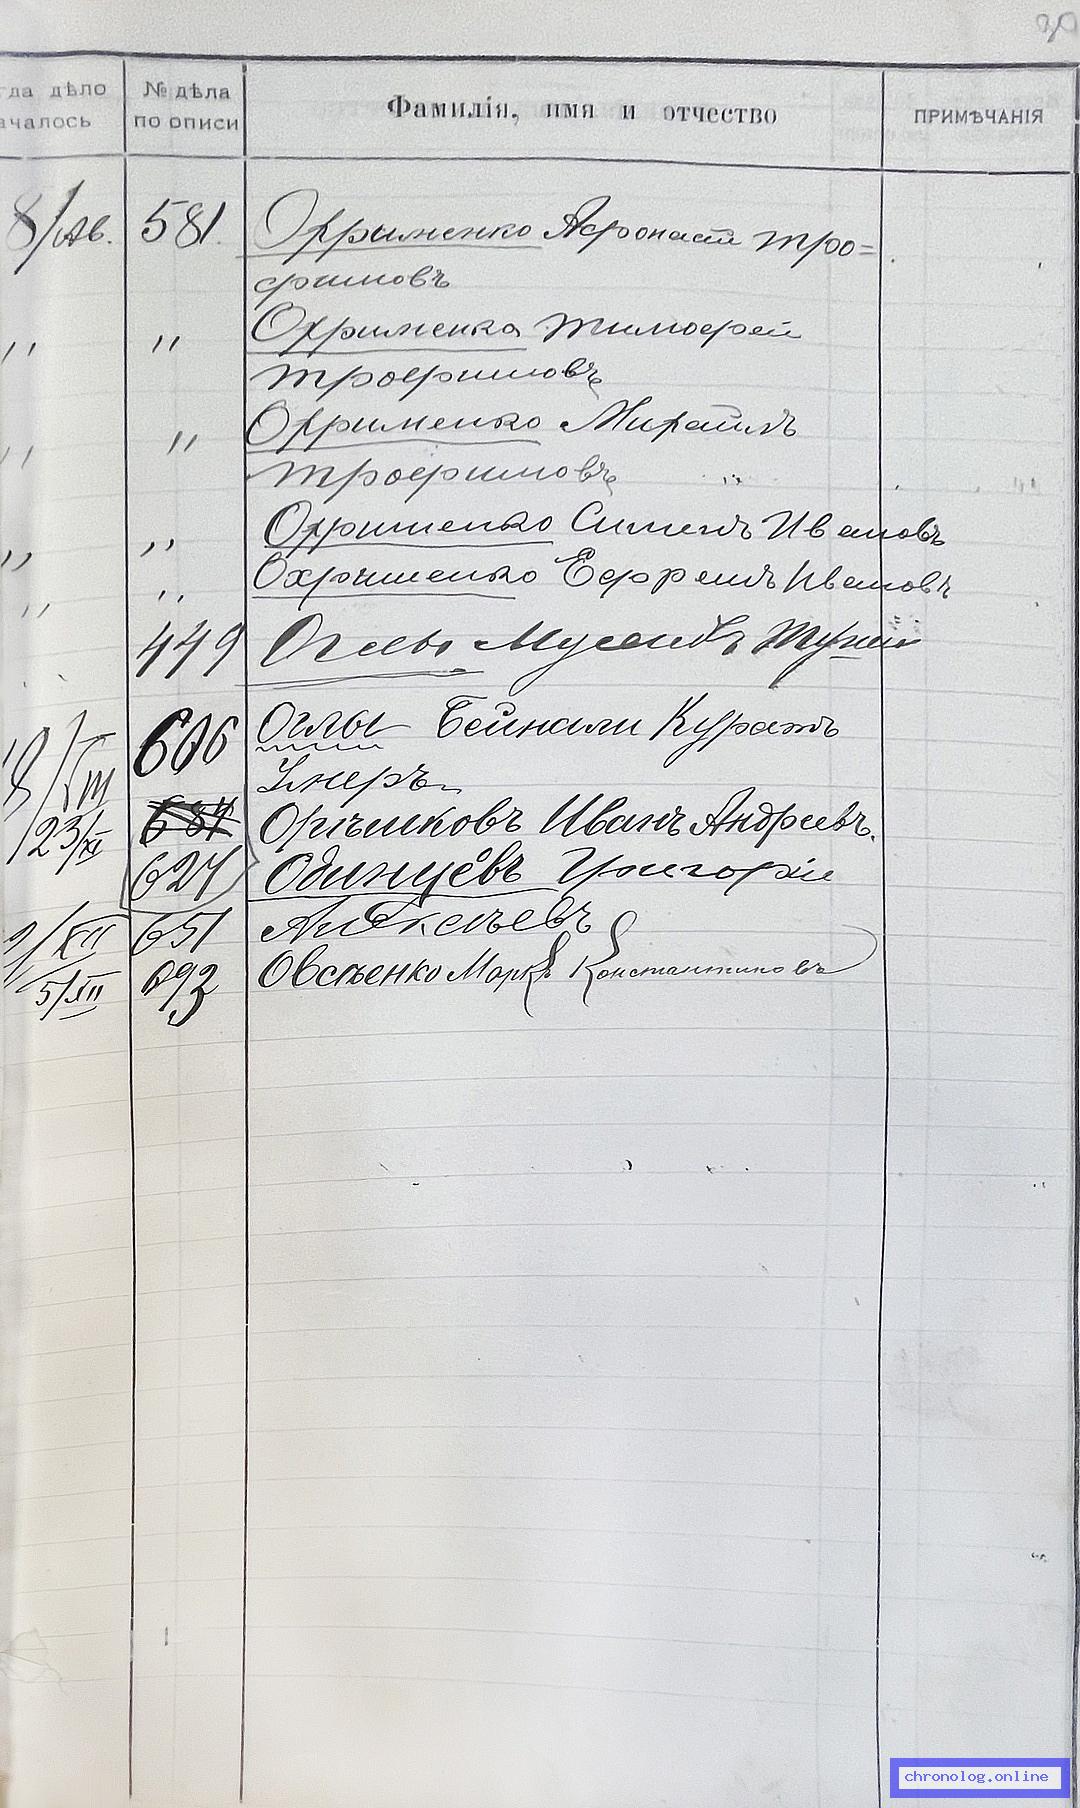 30
гда дѣло № дѣла Фамилія, имя и отчество ПРИМѢЧАНІЯ
ачалось по описи
8/ав. 581. Охрименко Афонасій Тро=
фимовъ
,, ,, Охрименко Тимофей
Трофимовъ
,, ,, Охрименко Михаилъ
Трофимовъ
,, ,, Охрименко Сименъ Ивановъ
,, ,, Охрименко Ефремъ Ивановъ
449 Оглы Мусеибъ
606 Оглы Бейнали Куратъ
18/VIII Умеръ
23/XI 687 Орѣшковъ Иванъ Андреевъ.
627 Одинцёвъ Григорій
2/XII 651 Алексѣевъ
5/XII 693 Овсѣенко Маркъ Константиновъ
chronolog.online